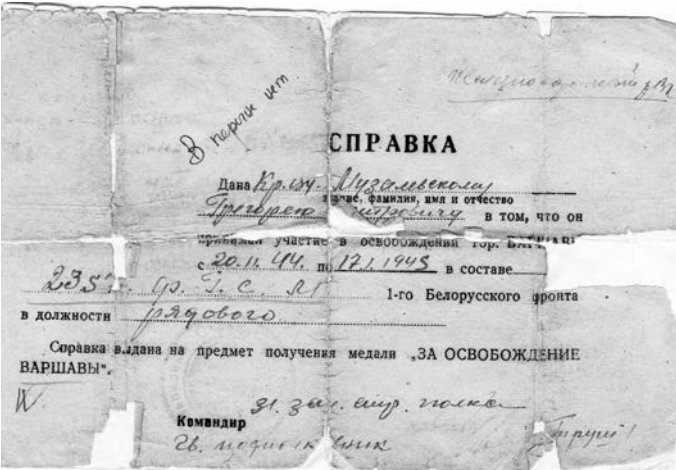 В перечне нет
СПРАВКА
Дана Кр-цу. Музалевскому
звание, фамилия, имя и отчество
Григорию в том, что он
принимал участие в освобождении гор. ВАРШАВЫ
с 20.11.44. по 17.1.1945 в составе
235 1-го Белорусского фронта
в должности рядового
Справка выдана на предмет получения медали „ЗА ОСВОБОЖДЕНИЕ
ВАРШАВЫ".
IV
полка
Командир
Гв. подполковник